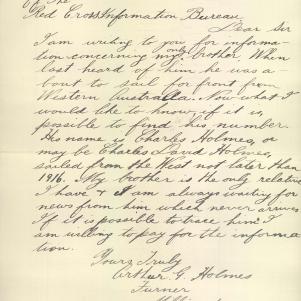 of The
Red Cross Information Bureau.
Dear Sir
I am writing to you for informa-
tion concerning my only brother. When
last heard of him he was a-
bout to sail for front from
Western Australia. Now what I
would like to know, if it is
possible to find his number.
His name is Charles Holmes, or
may be Charles David Holmes,
sailed from the West not later than
1916. My brother is the only relative
I have & I am always waiting for
news from him which never arrives
If it is possible to trace him I
am willing to pay for the informa-
tion.
Yours Truly
Arthur. G. Holmes
Furner